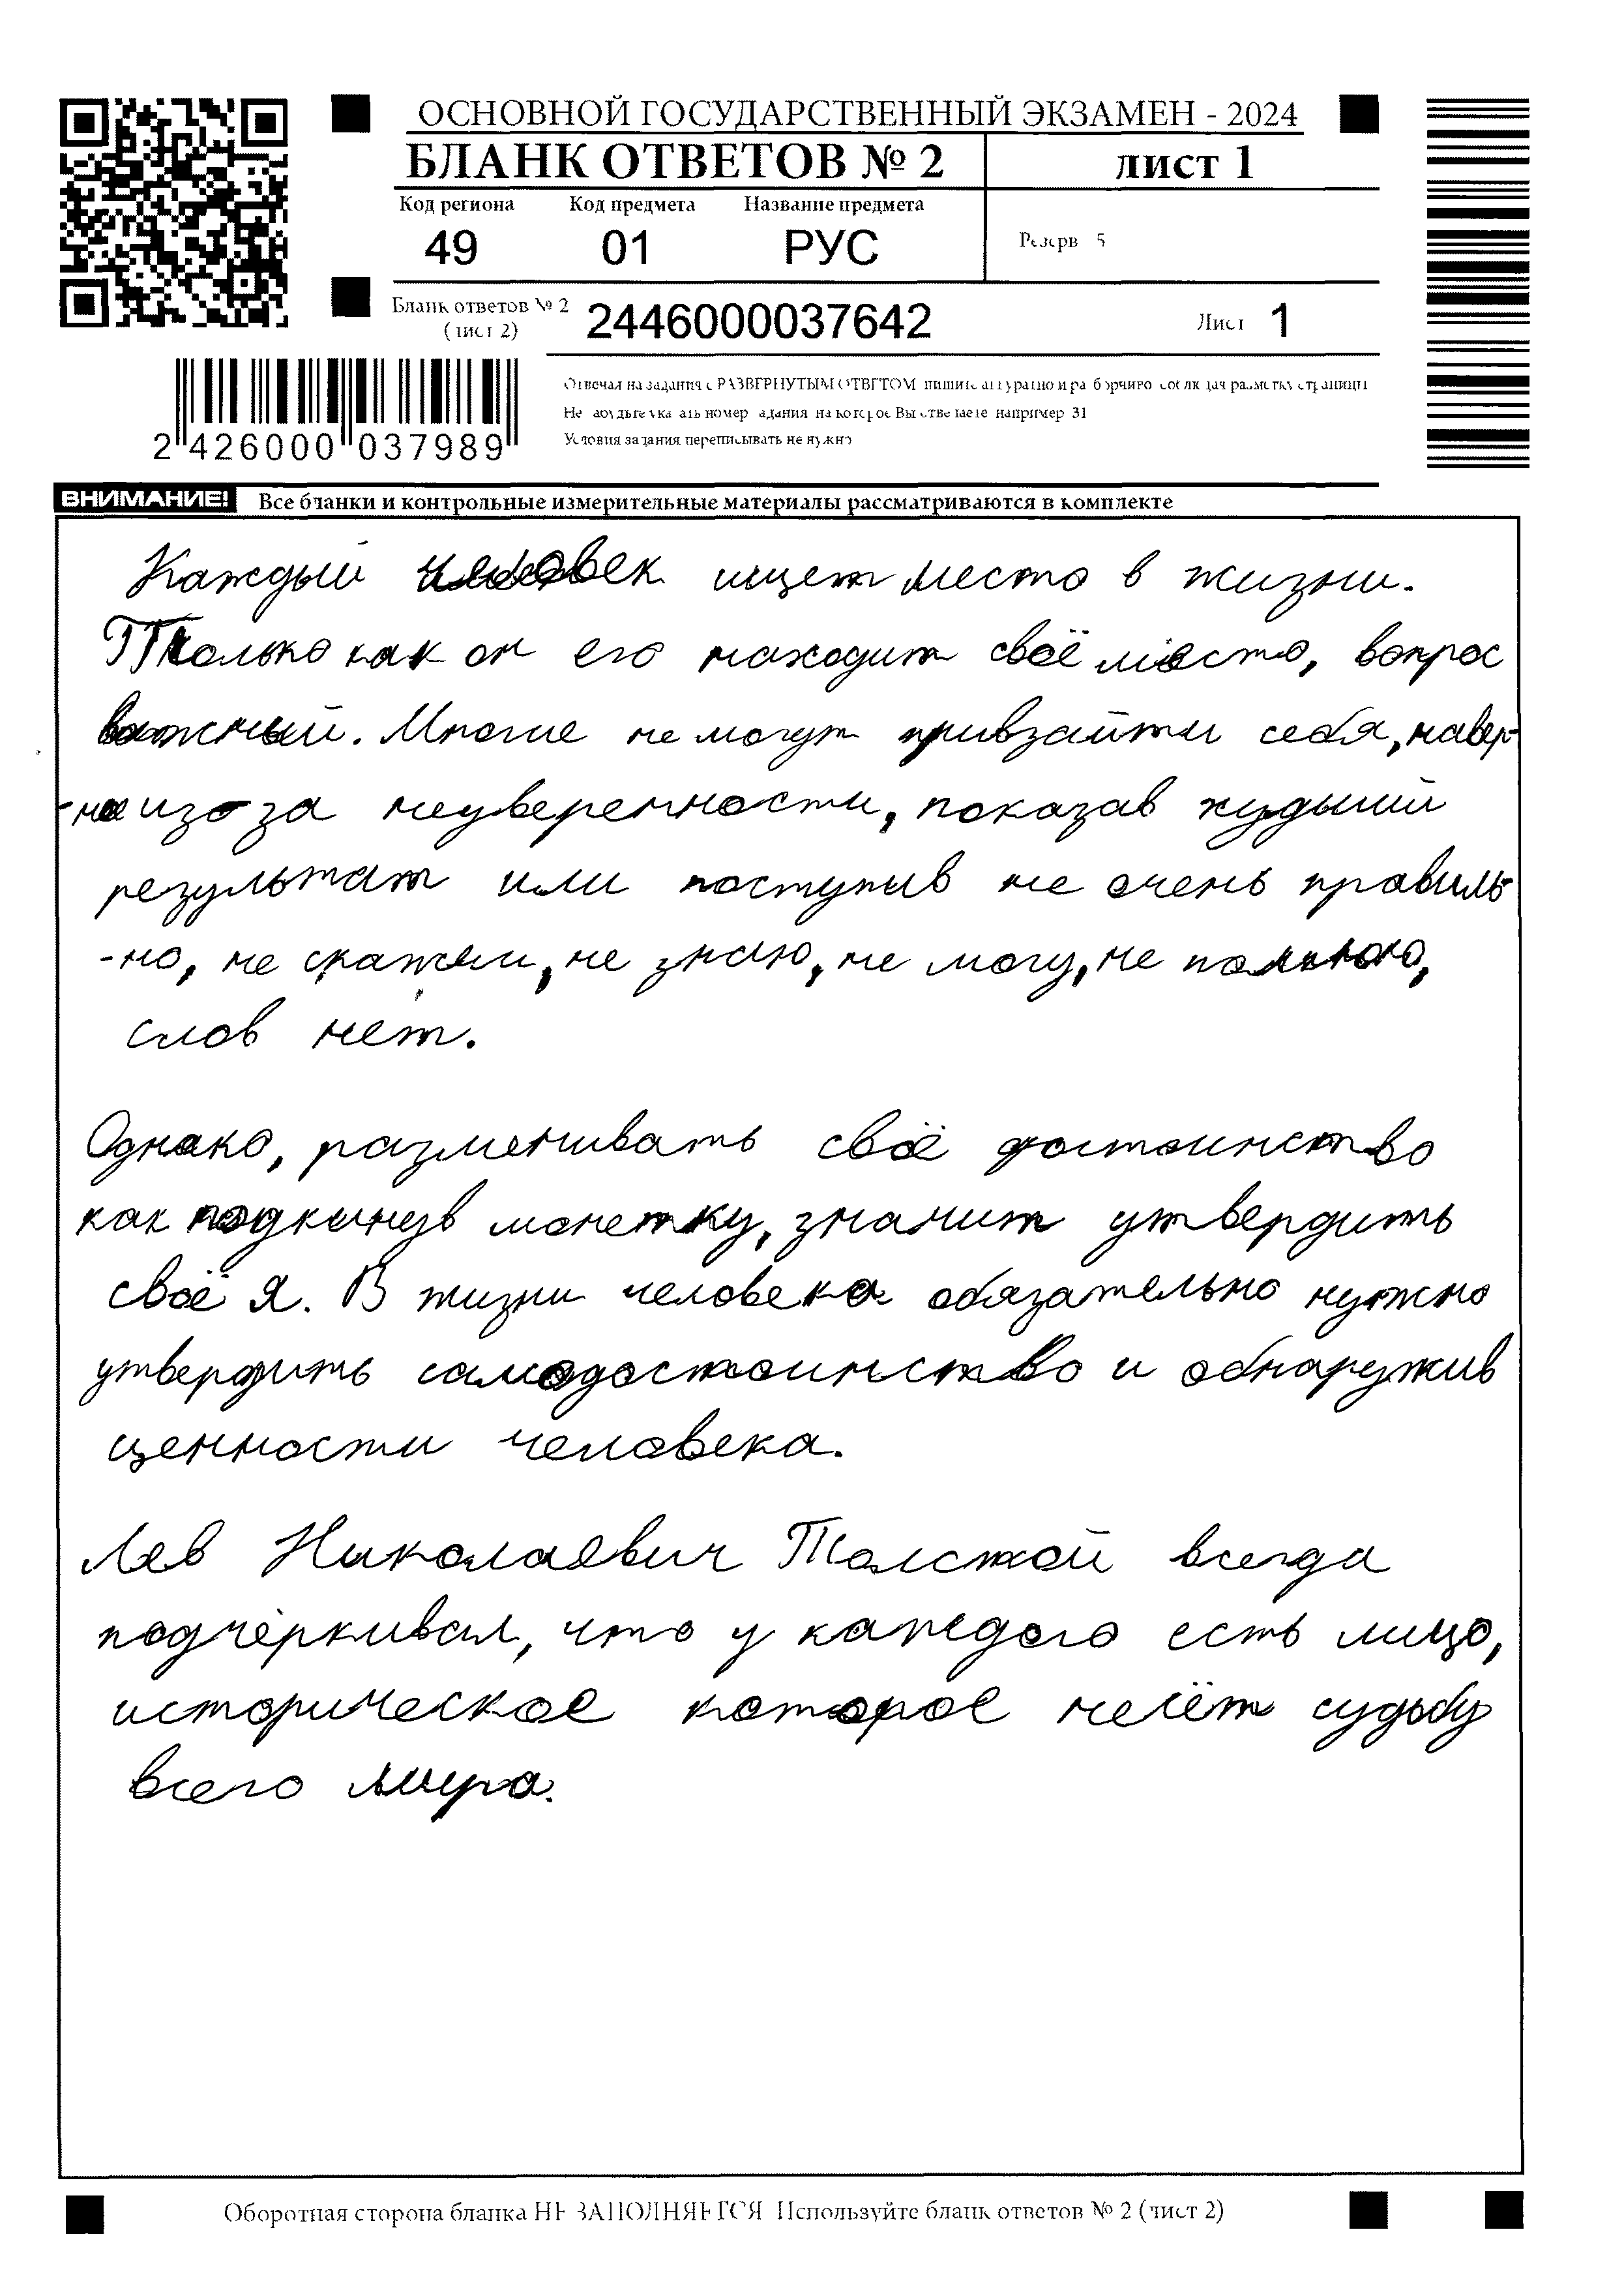 ОСНОВНОЙ ГОСУДАРСТВЕННЫЙ ЭКЗАМЕН - 2024
БЛАНК ОТВЕТОВ № 2
лист 1
Код региона Код предмета Название предмета
49 01 РУС
Резерв 5
Бланк ответов № 2
(лист 2)
2446000037642
Лист 1
2 426000 037989
Отвечая на задания с РАЗВЕРНУТЫМ ОТВЕТОМ пишите аккуратно и разборчиво соблюдая разметку страницы
Не забудьте указать номер задания на которое Вы отвечаете например 31
Условия задания переписывать не нужно
ВНИМАНИЕ! Все бланки и контрольные измерительные материалы рассматриваются в комплекте
Каждый человек ищет место в жизни.
Только как он его находит своё место, вопрос
важный. Многие не могут привзайти себя, навер-
-но изо за неуверенности, показав худыший
результат или поступив не очень правиль-
-но, не скажем, не знаю, не могу, не помню,
слов нет.
Однако, разменивать своё достоинство
как подкинув монетку, значит утвердить
своё я. В жизни человека обязательно нужно
утвердить самодостоинство и обнаружив
ценности человека.
Лев Николаевич Толстой всегда
подчёркивал, что у каждого есть лицо,
историческое которое несёт судьбу
всего мира.
Оборотная сторона бланка НЕ ЗАПОЛНЯЕТСЯ Используйте бланк ответов № 2 (лист 2)